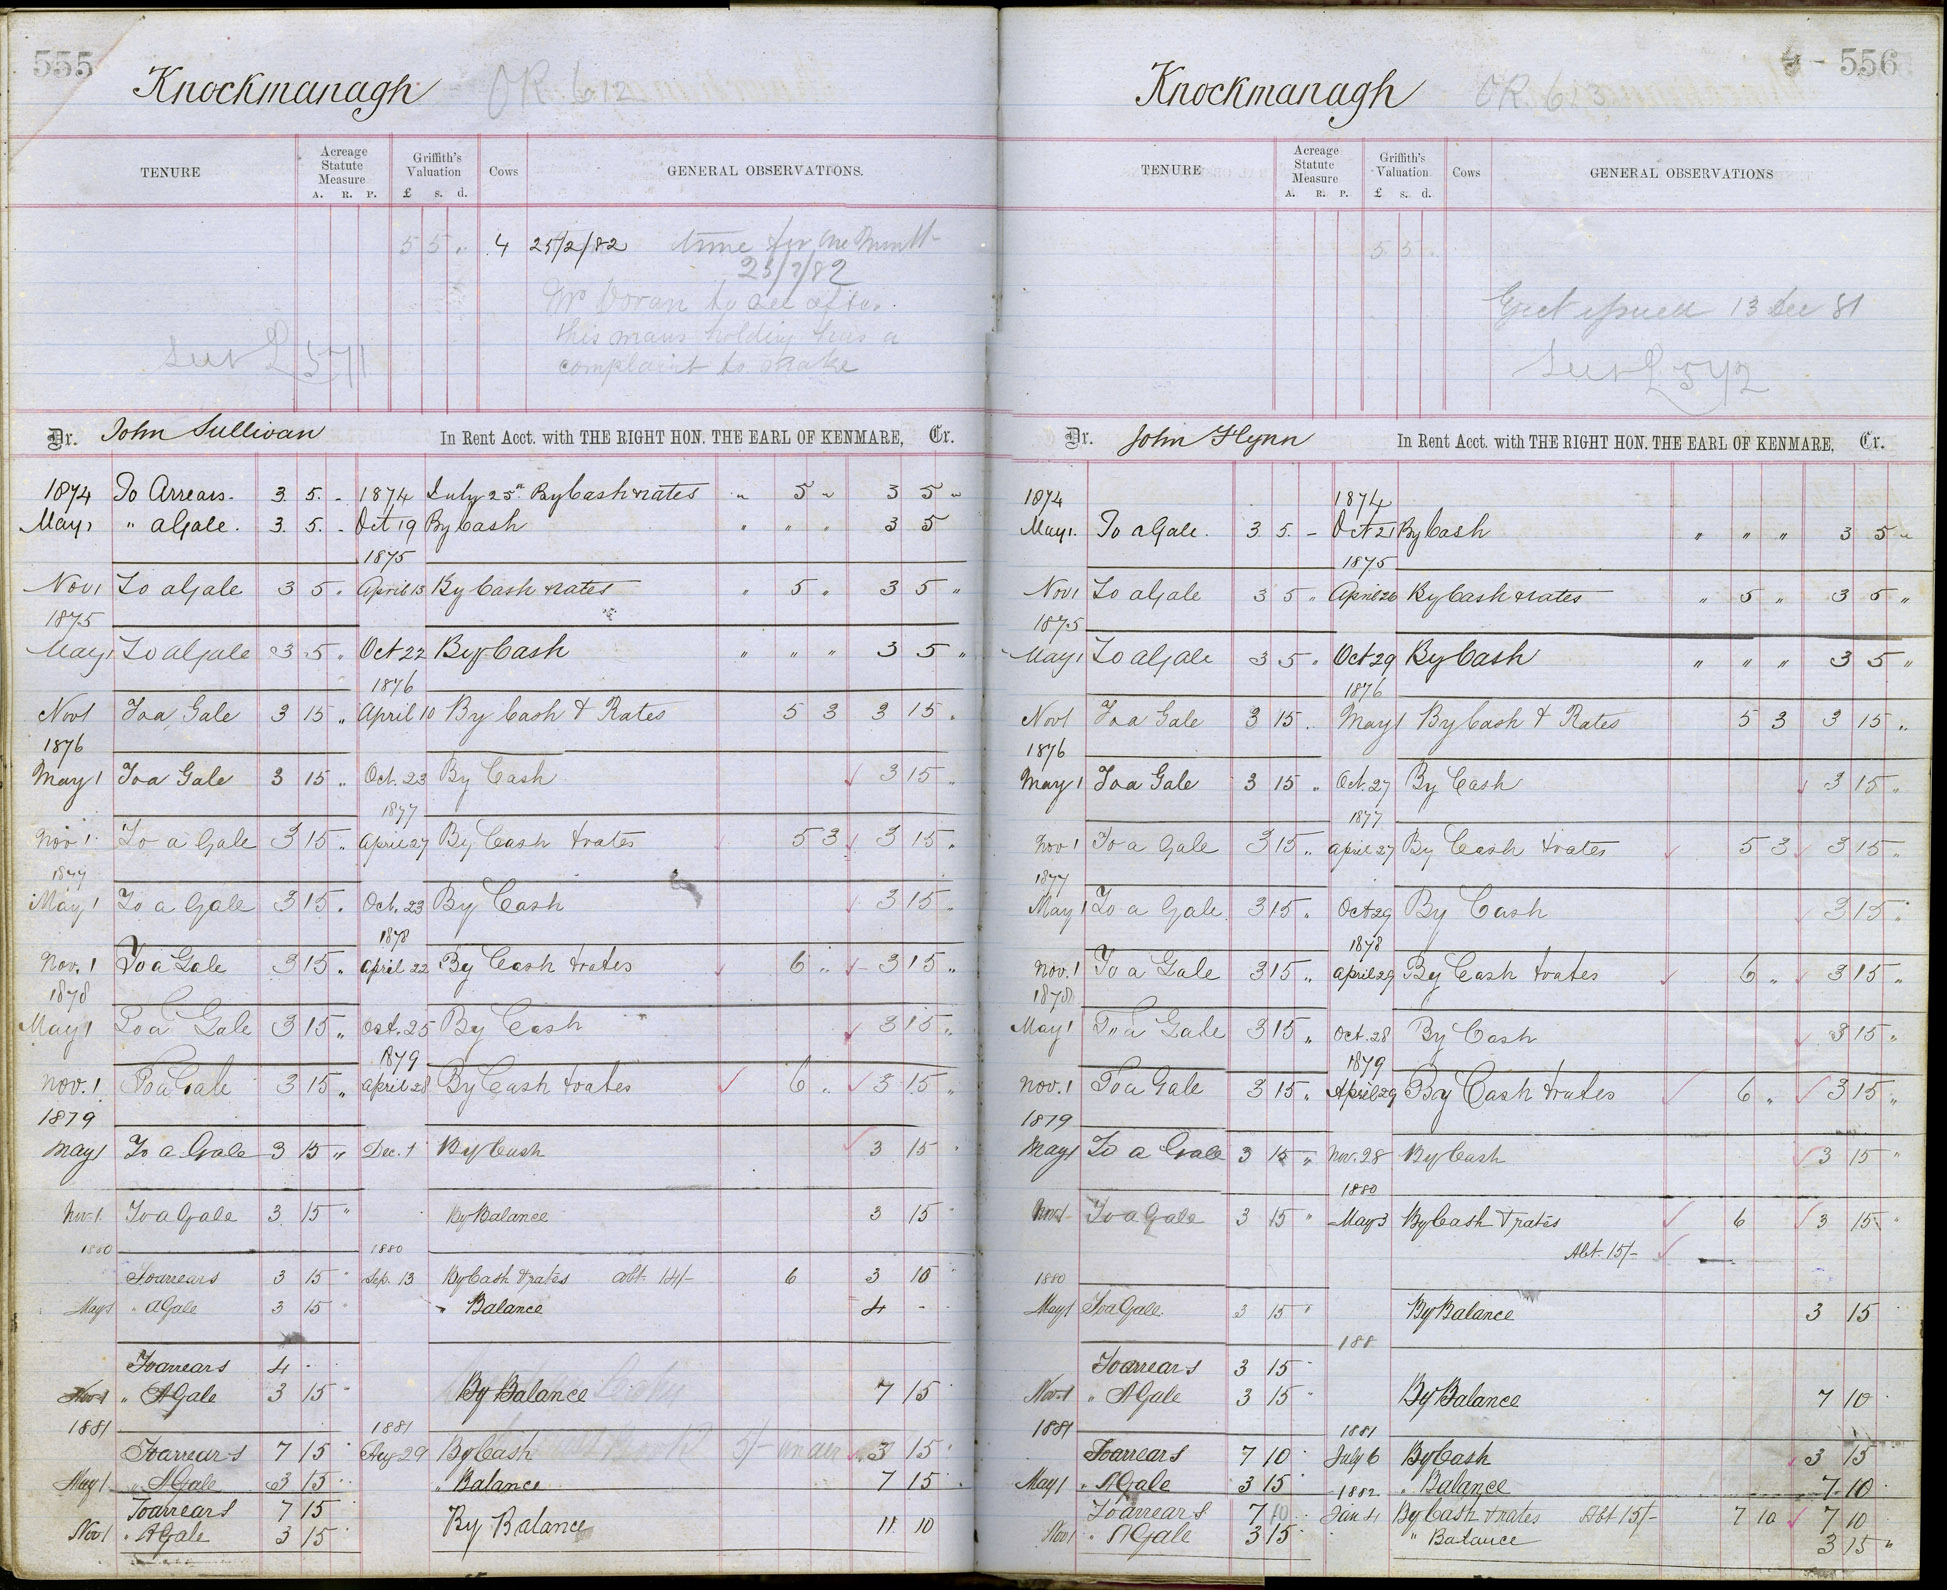 555
Knockmanagh OR. 612
TENURE
Acreage Statute Measure A. R. P.
Griffith's Valuation £ s. d.
Cows
GENERAL OBSERVATIONS.
5 5 „ 4 25/2/82 time for one Month
23/2/82
Mr Doran to see after
this mans holding has a
complaint to make
Dr. John Sullivan In Rent Acct. with THE RIGHT HON. THE EARL OF KENMARE, Cr.
1874 To Arrears. 3. 5. - 1874 July 25th By Cash & rates „ 5 „ 3 5 „
May 1 „ a Gale. 3. 5. - Oct 19 By Cash „ „ „ 3 5
1875
Nov 1 To a Gale 3 5 „ April 13 By Cash & rates „ 5 „ 3 5 „
1875
May 1 To a Gale 3 5 „ Oct 22 By Cash „ „ „ 3 5 „
1876
Nov 1 To a Gale 3 15 „ April 10 By Cash & Rates 5 3 3 15 „
1876
May 1 To a Gale 3 15 „ Oct. 23 By Cash 3 15 „
1877
Nov 1 To a Gale 3 15 „ April 27 By Cash & rates 5 3 3 15 „
1877
May 1 To a Gale 3 15 „ Oct. 23 By Cash 3 15 „
1878
Nov. 1 To a Gale 3 15 „ April 22 By Cash & rates 6 „ 3 15 „
1878
May 1 To a Gale 3 15 „ Oct. 25 By Cash 3 15 „
1879
Nov. 1 To a Gale 3 15 „ April 28 By Cash & rates 6 „ 3 15 „
1879
May 1 To a Gale 3 15 „ Dec. 1 By Cash 3 15 „
Nov 1 To a Gale 3 15 „ By Balance 3 15 „
1880 1880
To arrears 3 15 „ Sep. 13 By Cash & rates abt. 14/- 6 3 10
May 1 „ a Gale 3 15 „ „ Balance 4 -
To arrears 4 -
Nov 1 „ A Gale 3 15 „ By Balance 7 15
1881 1881
To arrears 7 15 Aug 29 By Cash 3 15
May 1 „ A Gale 3 15 „ Balance 7 15
To arrears 7 15
Nov 1 „ A Gale 3 15 By Balance 11 10
556
Knockmanagh OR. 613
TENURE
Acreage Statute Measure A. R. P.
Griffith's Valuation £ s. d.
Cows
GENERAL OBSERVATIONS
5 5 „
Eject issued 13 Dec 81
Dr. John Flynn In Rent Acct. with THE RIGHT HON. THE EARL OF KENMARE, Cr.
1874 1874
May 1. To a Gale. 3 5. - Oct 21 By Cash „ „ „ 3 5 „
1875
Nov 1 To a Gale 3 5 „ April 26 By Cash & rates „ 5 „ 3 5 „
1875
May 1 To a Gale 3 5 „ Oct 29 By Cash „ „ „ 3 5 „
1876
Nov 1 To a Gale 3 15 . May 1 By Cash & Rates 5 3 3 15 „
1876
May 1 To a Gale 3 15 „ Oct. 27 By Cash 3 15 „
1877
Nov 1 To a Gale 3 15 „ April 27 By Cash & rates 5 3 3 15 „
1877
May 1 To a Gale 3 15 „ Oct 29 By Cash 3 15 „
1878
Nov. 1 To a Gale 3 15 „ April 29 By Cash & rates 6 „ 3 15 „
1878
May 1 To a Gale 3 15 „ Oct. 28 By Cash 3 15 „
1879
Nov. 1 To a Gale 3 15 „ April 29 By Cash & rates 6 „ 3 15 „
1879
May 1 To a Gale 3 15 „ Nov. 28 By Cash 3 15 „
1880
Nov 1 To a Gale 3 15 „ May 3 By Cash & rates 6 3 15 „
Abt. 15/-
1880
May 1 To a Gale. 3 15 „ By Balance 3 15
188
To arrears 3 15
Nov 1 „ A Gale 3 15 „ By Balance 7 10
1881 1881
To arrears 7 10 July 6 By Cash 3 15
May 1 „ A Gale 3 15 1882 „ Balance 7 10
To arrears 7 10 Jan 4 By Cash & rates Abt 15/- 7 10 7 10
Nov 1 „ A Gale 3 15 „ Balance 3 15 „